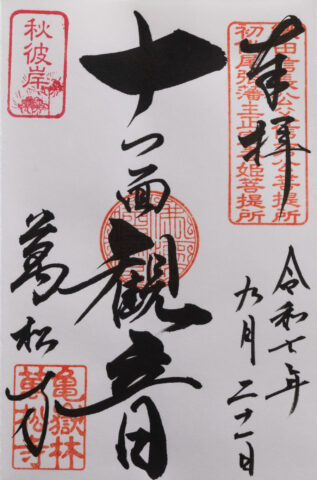 奉拝
初代尾張藩主正室春姫菩提所
令和七年
九月二十一日
十一面観音
秋彼岸
萬松寺
龜嶽林
萬松寺